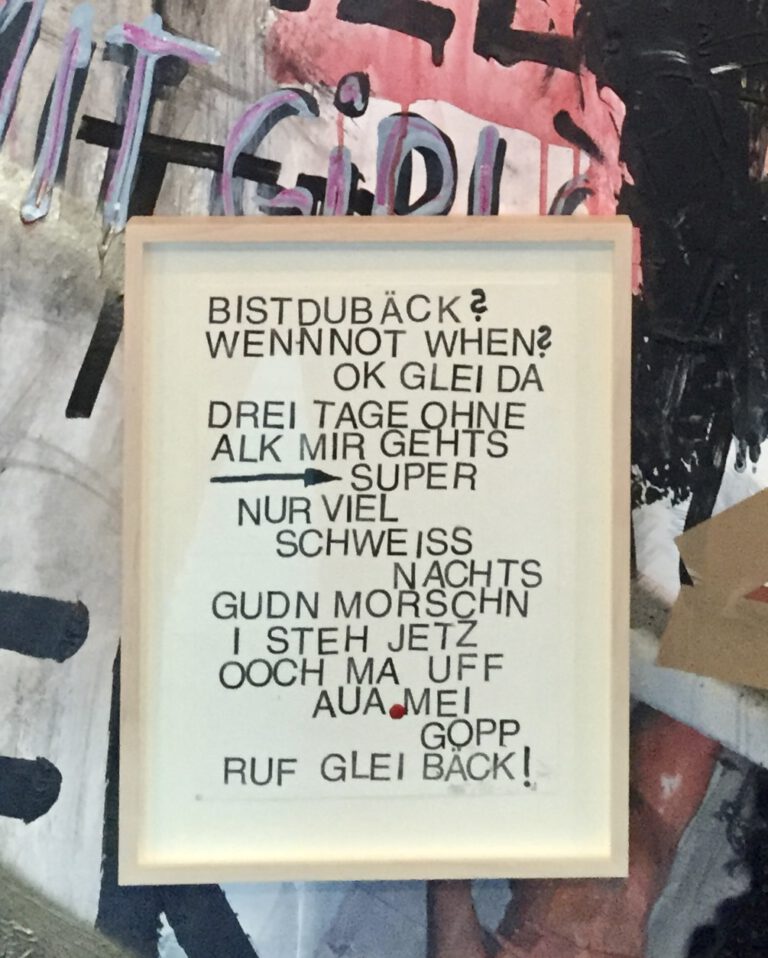 MIT GiRL
BISTDUBÄCK?
WENNNOT WHEN?
OK GLEI DA
DREI TAGE OHNE
ALK MIR GEHTS
SUPER
NUR VIEL
SCHWEISS
NACHTS
GUDN MORSCHN
I STEH JETZ
OOCH MA UFF
AUA.MEI
GÖPP
RUF GLEI BÄCK!